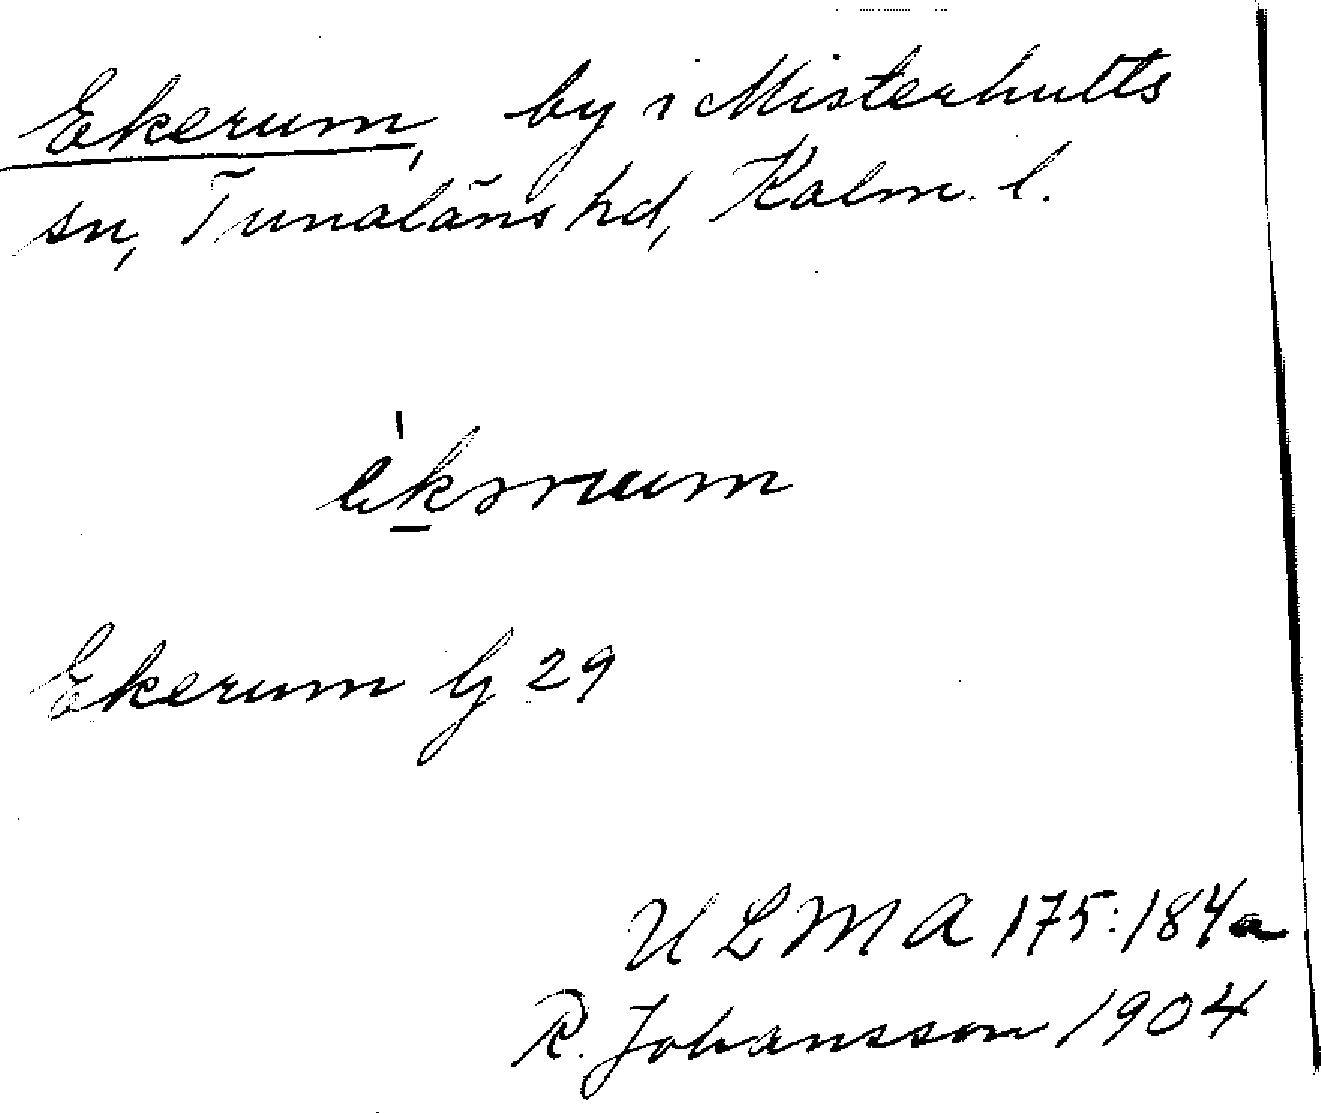 Ekerum, by i Misterhults
sn, Tunaläns hd, Kalm. l.
Ekerum G 29
ULMA 175:184a
R. Johansson 1904